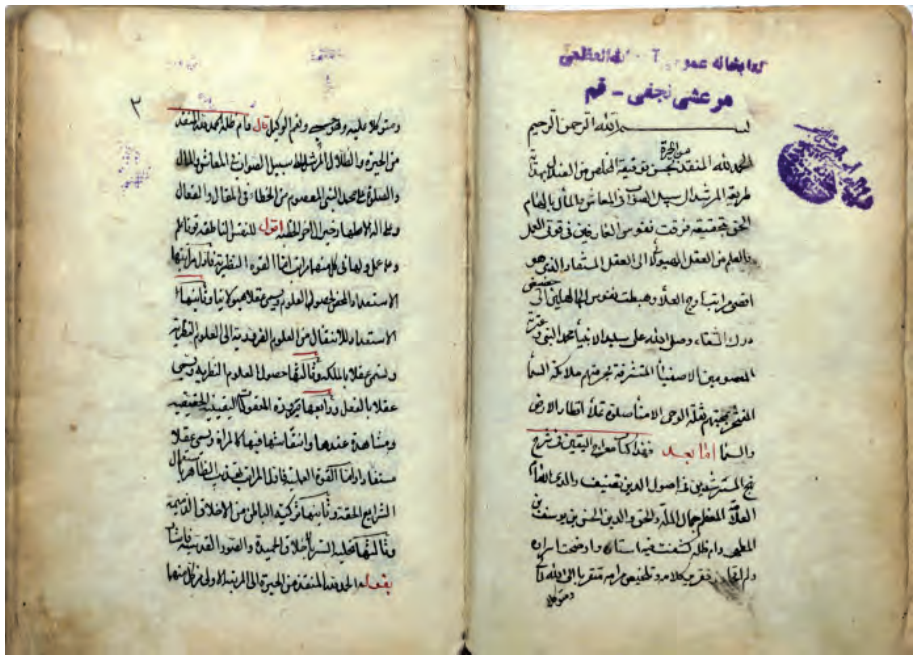 كتابخانه عمومى آيت الله العظمى
مرعشى نجفى - قم
بسم الله الرحمن الرحيم
الحمد لله المنقذ بحسن توفيقه المخلص من الضلال بهداية
من الحيرة
طريقه المرشد الى سبيل الصواب فى المعاش والمآل بالهام
الحق بتحقيقه فرقت نفوس العارفين فى قوتى العمل
والعلم من العقل الهيولا الى العقل المستفاد الذى هو
اقصى مراتب اوج العلا وهبطت نفوس الجاهلين الى
حضيض
درك الشقاء وصلى الله على سيد الانبيا محمد النبى وعترته
المعصومين الاصفيا المتشرفة بخدمتهم ملائكة السما
المفتخر بمحبتهم نقلة الوحى الامنا صلوة تملأ اقطار الارض
والسما اما بعد فهذا كتاب معراج اليقين فى شرح
نهج المسترشدين فى اصول الدين تصنيف والدى
العلامة المعظم جمال الملة والحق والدين الحسن بن يوسف بن
المطهر دام ظله كشفت فيه استاره واوضحت اسراره
كلامه وتلخيص مرامه متقربا الى الله تعالى
ومتوكلا
٢
ومتوكلا عليه وهو حسبى ونعم الوكيل قال دام ظله الحمد لله المنقذ
من الحيرة والضلال المرشد الى سبيل الصواب فى المعاش والمآل
والصلوة على محمد النبى المعصوم من الخطاء فى المقال والفعال
وعلى آله الاطهار خير آل اقول للنفس الناطقة قوتا علم
وعمل ولها فى كل منهما مراتب اما القوة النظرية فاول مراتبها
الاستعداد المحض لحصول العلوم ويسمى عقلا هيولانيا وثانيتها
الاستعداد للانتقال من العلوم الضرورية الى العلوم النظرية
ويسمى عقلا بالملكة وثالثتها حصول العلوم النظرية ويسمى
عقلا بالفعل ورابعتها المعقولات اليقينية الحقيقيه
ومشاهدة عندها وانتقاشها فيها كالمرآة ويسمى عقلا
مستفادا واما القوة العملية فاول المراتب تهذيب الظاهر باستعمال
الشرايع الحقة وثانيتها تزكية الباطن من الاخلاق الذميمة
وثالثتها تحلية السر بالاخلاق الحميدة والصور القدسية فاشار
بقوله الحمد لله المنقذ من الحيرة الى المرتبة الاولى من كل منهما